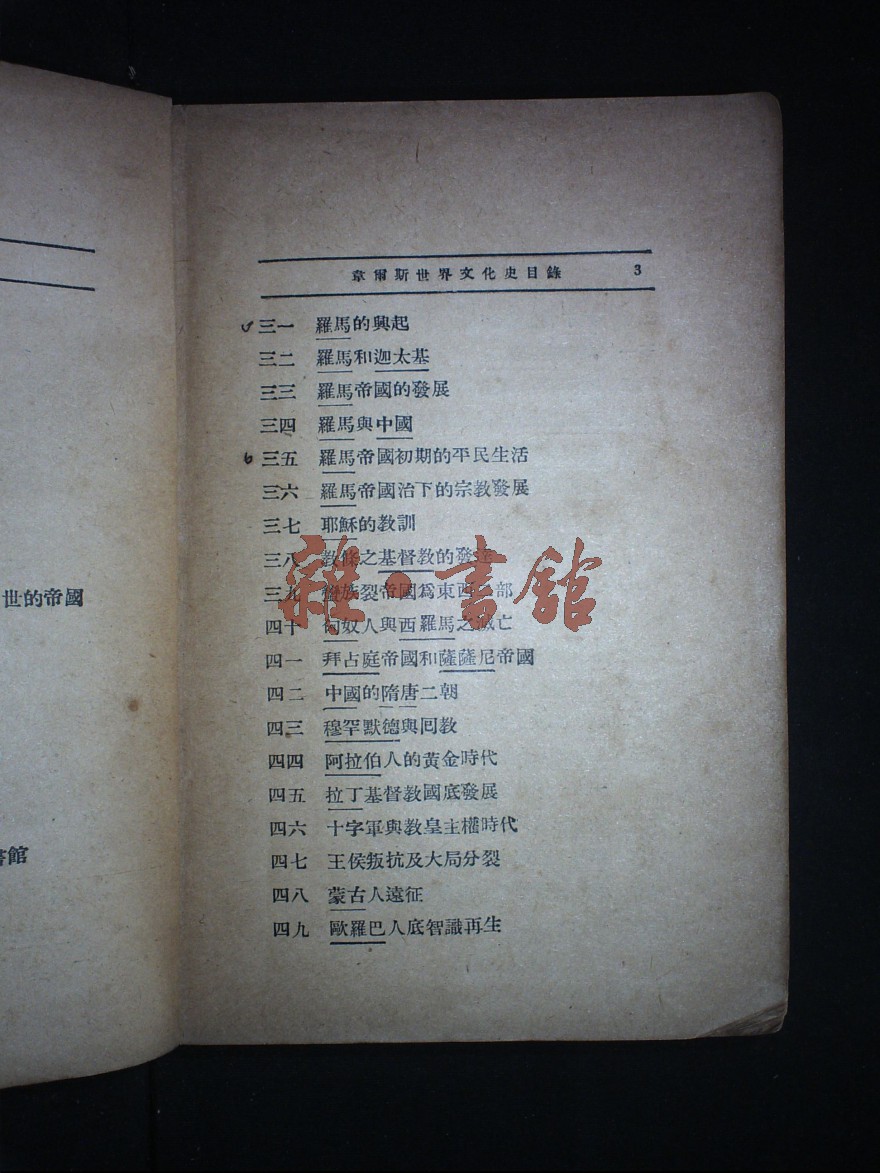 世的帝國
書館
韋爾斯世界文化史目錄 3
三一 羅馬的興起
三二 羅馬和迦太基
三三 羅馬帝國的發展
三四 羅馬與中國
三五 羅馬帝國初期的平民生活
三六 羅馬帝國治下的宗教發展
三七 耶穌的教訓
三八 教條之基督教的發達
三九 蠻族裂帝國爲東西二部
四十 匈奴人與西羅馬之滅亡
四一 拜占庭帝國和薩薩尼帝國
四二 中國的隋唐二朝
四三 穆罕默德與囘教
四四 阿拉伯人的黃金時代
四五 拉丁基督教國底發展
四六 十字軍與教皇主權時代
四七 王侯叛抗及大局分裂
四八 蒙古人遠征
四九 歐羅巴人底智識再生
雜·書館